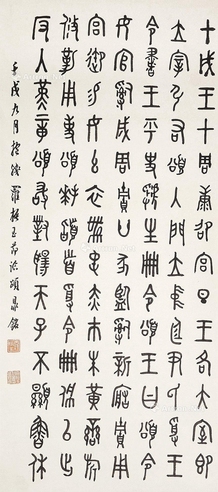 甲戌王才周康卲宮旦王各大室即
立宰弘右頌入門立中廷尹氏受王
令書王乎史虢生冊令頌王曰頌令
女官𤔲成周貯監𤔲新寤貯用
宮御易女玄衣黹屯赤巿朱黃䜌旂
攸勒用事頌拜𩒨首受令冊佩以出
反入堇章頌敢對揚天子不顯魯休
壬戌九月羅振玉節臨頌鼎銘